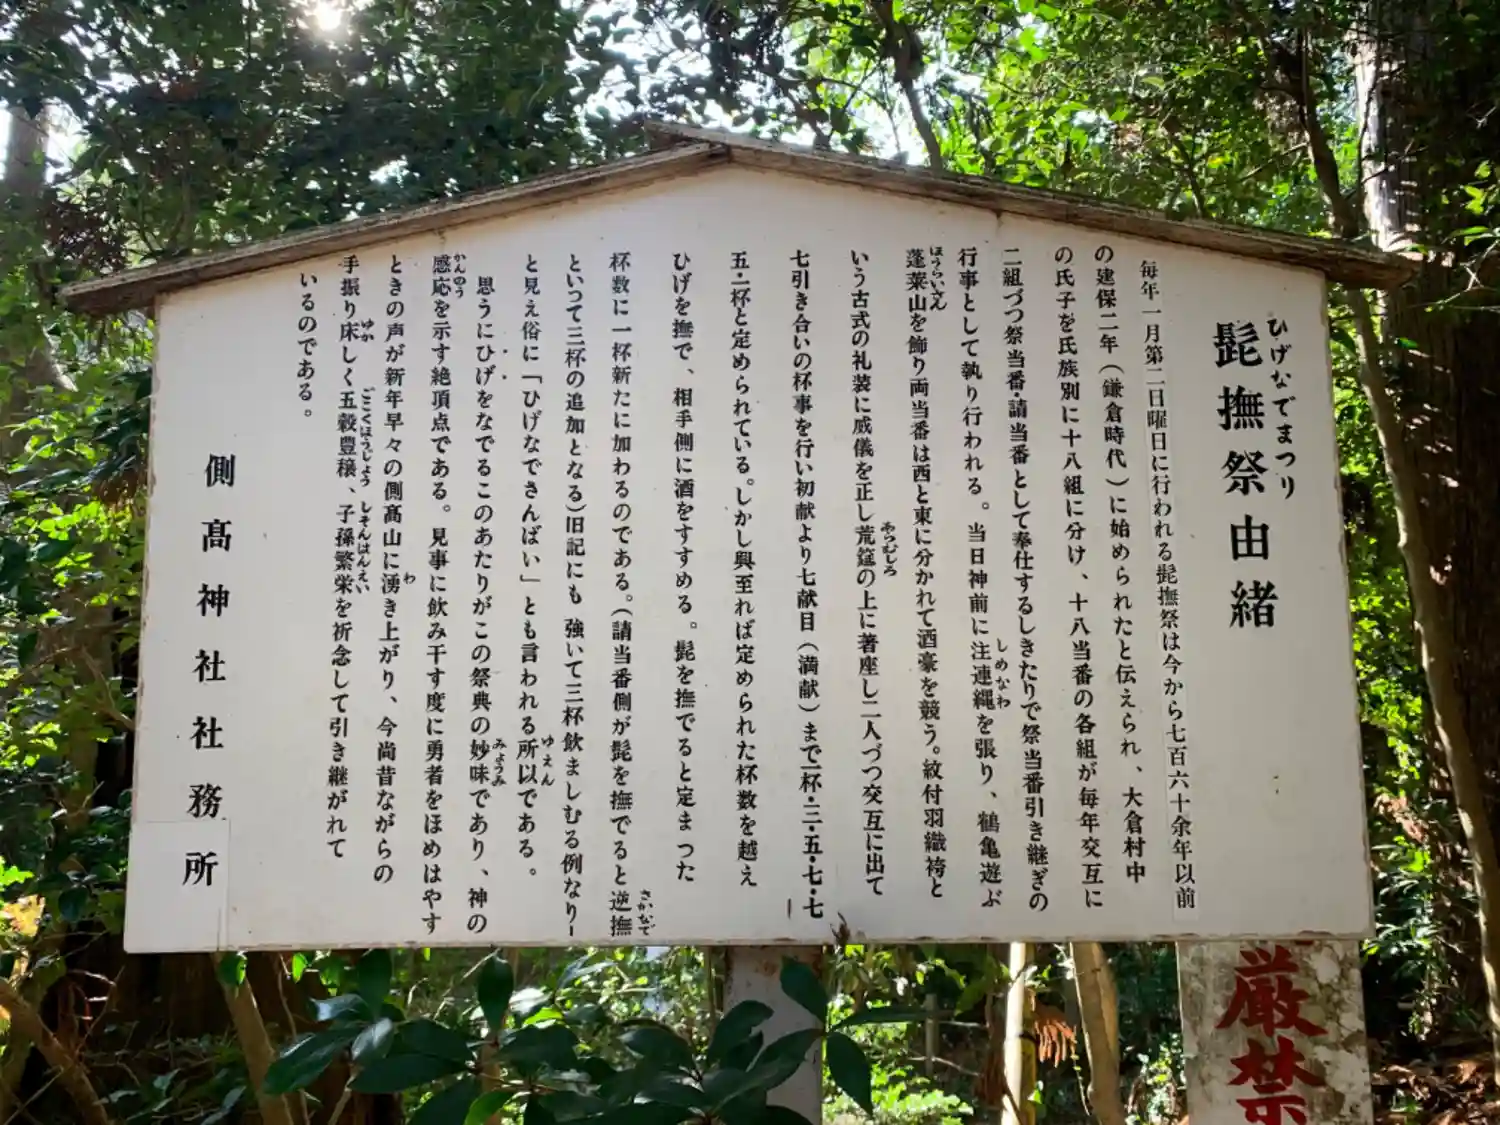 髭撫祭由緒
ひげなでまつり
毎年一月第二日曜日に行われる髭撫祭は今から七百六十余年以前
の建保二年(鎌倉時代)に始められたと伝えられ、大倉村中
の氏子を氏族別に十八組に分け、十八当番の各組が毎年交互に
二組づつ祭当番・請当番として奉仕するしきたりで祭当番引き継ぎの
行事として執り行われる。当日神前に注連縄を張り、鶴亀遊ぶ
しめなわ
蓬萊山を飾り両当番は西と東に分かれて酒豪を競う。紋付羽織袴と
ほうらいさん
いう古式の礼装に威儀を正し荒筵の上に著座し二人づつ交互に出て
あらむしろ
七引き合いの杯事を行い初献より七献目(満献)まで一杯・三・五・七・七
五・三杯と定められている。しかし興至れば定められた杯数を越え
ひげを撫で、相手側に酒をすすめる。髭を撫でると定まった
杯数に一杯新たに加わるのである。(請当番側が髭を撫でると逆撫
さかなで
といつて三杯の追加となる)旧記にも 強いて三杯飲ましむる例なり―
と見え俗に「ひげなでさんばい」とも言われる所以である。
ゆえん
思うにひげをなでるこのあたりがこの祭典の妙味であり、神の
みようみ
感応を示す絶頂点である。見事に飲み干す度に勇者をほめはやす
かんのう
ときの声が新年早々の側髙山に湧き上がり、今尚昔ながらの
わ
手振り床しく五穀豊穣、子孫繁栄を祈念して引き継がれて
ゆか ごこくほうじょう しそんはんえい
いるのである。
側髙神社社務所
厳禁